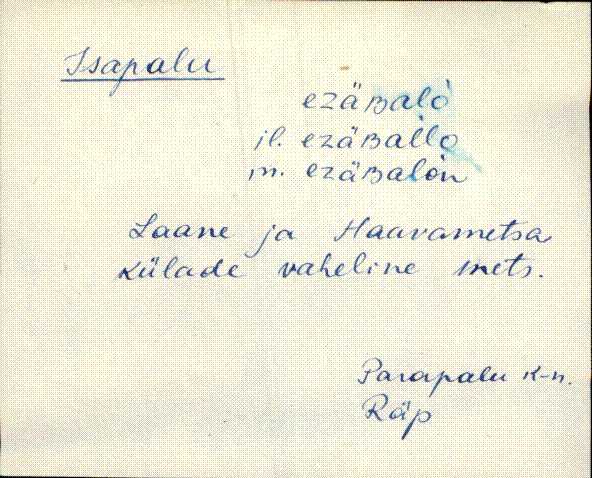 Isapalu
ezäʙalò
il. ezäʙallo
in. ezäʙalòn
Laane ja Haavametsa
külade vaheline mets.
Parapalu k-n.
Räp